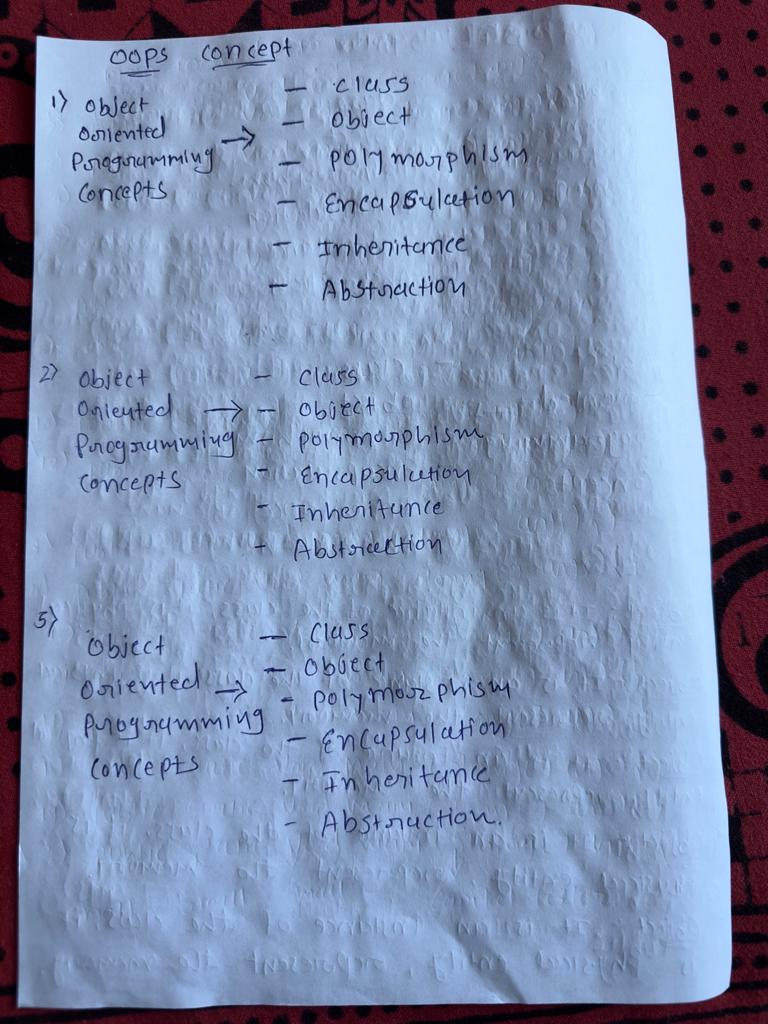 OOPS Concept
1) Object
Oriented
Programming →
Concepts
- Class
- Object
- Polymorphism
- Encapsulation
- Inheritance
- Abstraction
2) Object
Oriented →
Programming
Concepts
- Class
- Object
- Polymorphism
- Encapsulation
- Inheritance
- Abstraction
3)
Object
Oriented →
Programming
Concepts
- Class
- Object
- Polymorphism
- Encapsulation
- Inheritance
- Abstraction.